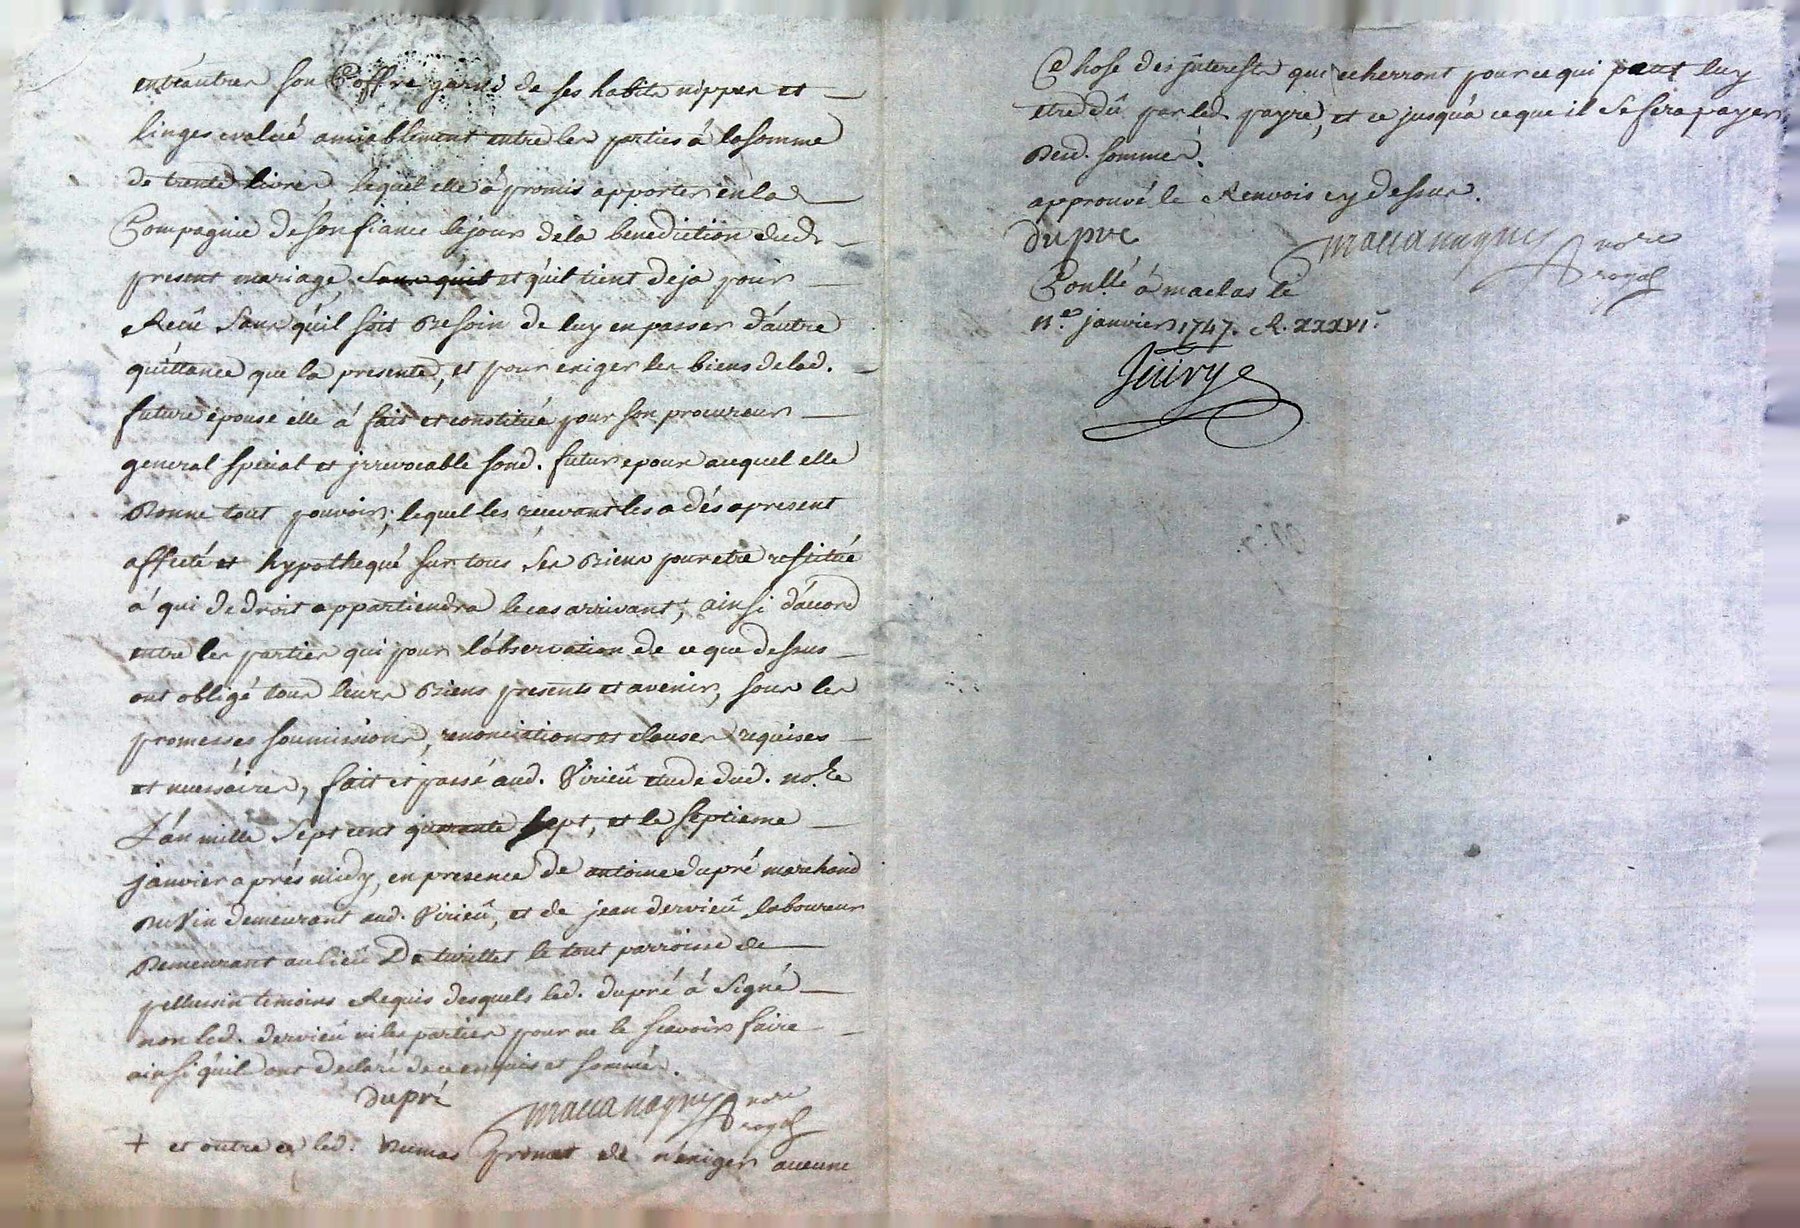 entrautres son Coffre garni de ses habits nippes et
linges evalué amiablement entre les parties á la somme
de trente livres lequel elle á promis apporter en la
Compagnie de son fiancé le jour de la benediction dud.
present mariage, sans quil et quil tient deja pour
Receu sans qu'il soit Besoin de luy en passer d'autre
quittance que la presente, et pour exiger les biens de lad.
future épouse elle á fait et constitué pour son procureur
general special et jrrevocable sond. futur epoux auquel elle
Donne tout pouvoir, lequel les recevant les a dés apresent
affecté et hypothequé sur tous ses Biens pour etre restitué
á qui de droit appartiendra le cas arrivant, + ainsi d'acord
entre les parties qui pour l'observation de ce que dessus
ont obligé tous leurs Biens presents et avenir, sous les
promesses soumissions, renonciations et clauses requises
et necessaires, fait et passé aud. Virieü etude dud. no.re
L'an mille sept cent quarante sept, et le septieme
janvier aprés midy, en presence de antoine dupré marchand
Du Vin demeurant aud. Virieü, et de jean dervieü laboureur
Demeurant au lieü De le tout parroisse de
pellussin temoins Requis desquels led. dupré á signé
non led. dervieü ni les parties pour ne le scavoir faire
ainsi qu'il ont declaré de ce enquis et sommés.
dupré
nore
royal
+ et outre ce led. Dumas promet de n'exiger aucune
Chose des jnterests qui echerront pour ce qui peut luy
etre dû par led. payre, et ce jusquá ce que il se fera payer
Desd. sommes.
approuvé le Renvois cy dessus.
dupré
nore
royal
Conllé á maclas le
11.e janvier 1747. R. XXXVI.s